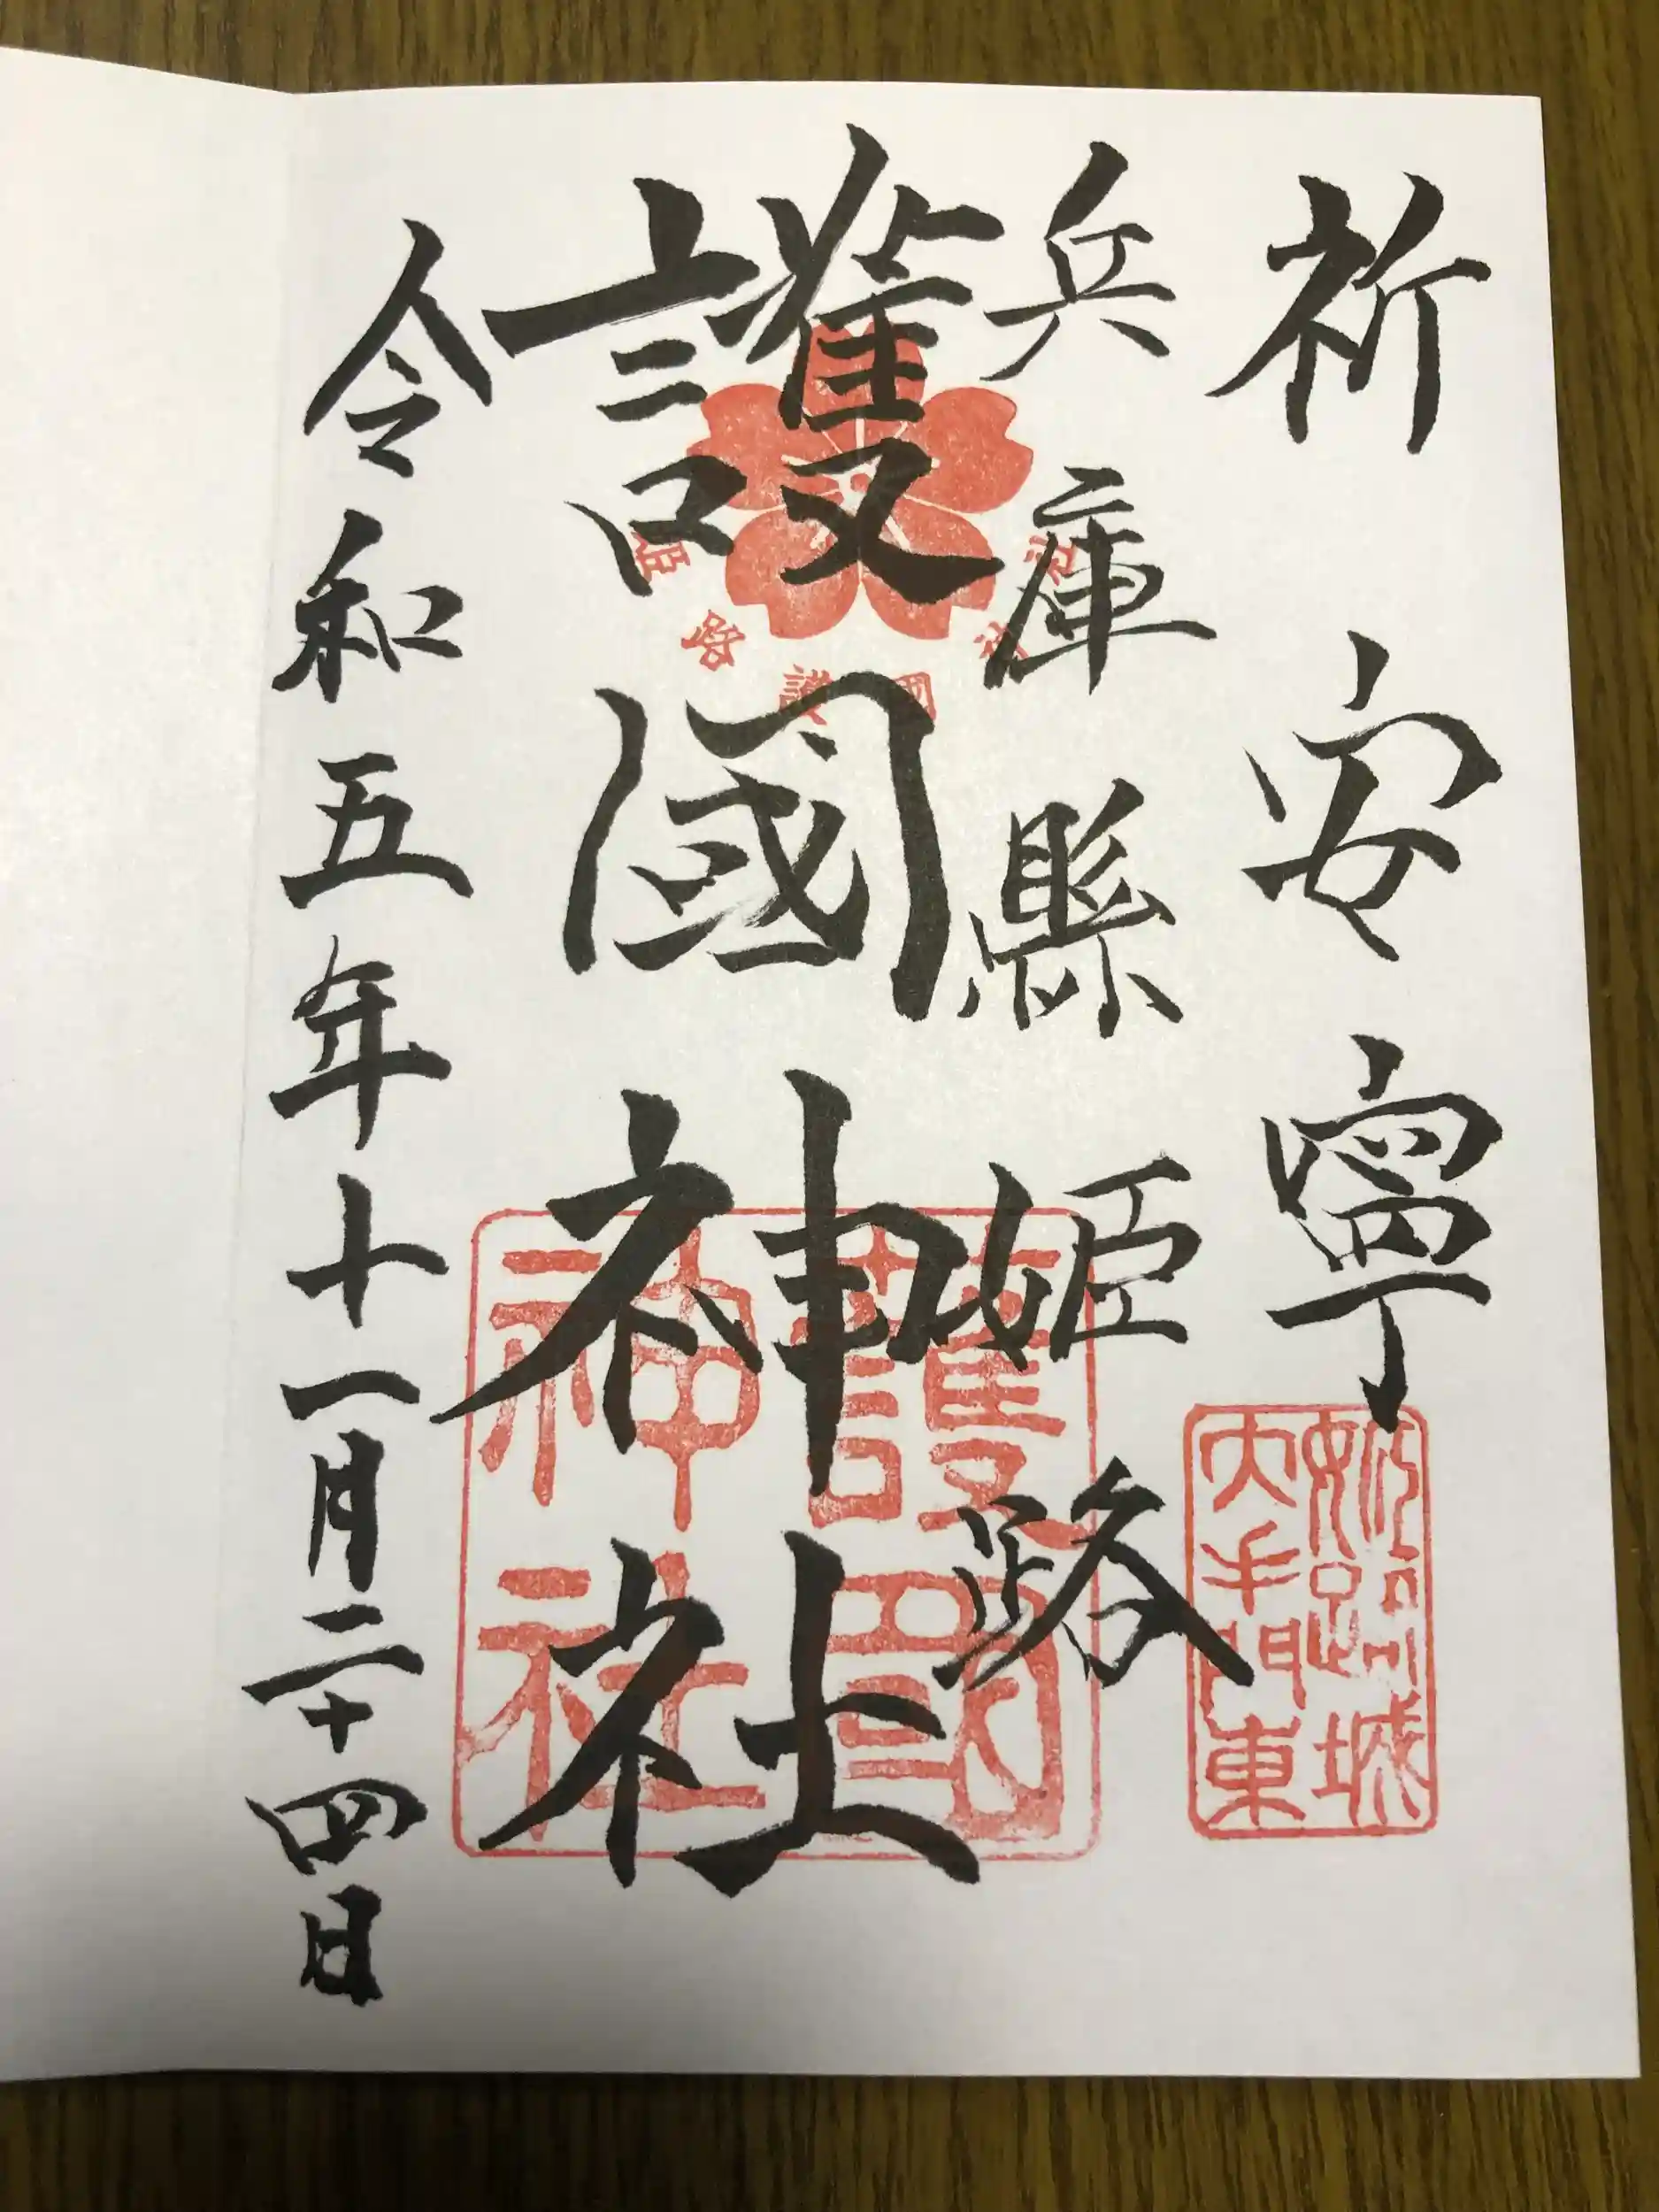 祈安寧
兵庫縣姫路
護國神社
令和五年十一月二十四日
姫路護國神社
護國
神社
姫路城
大手門東